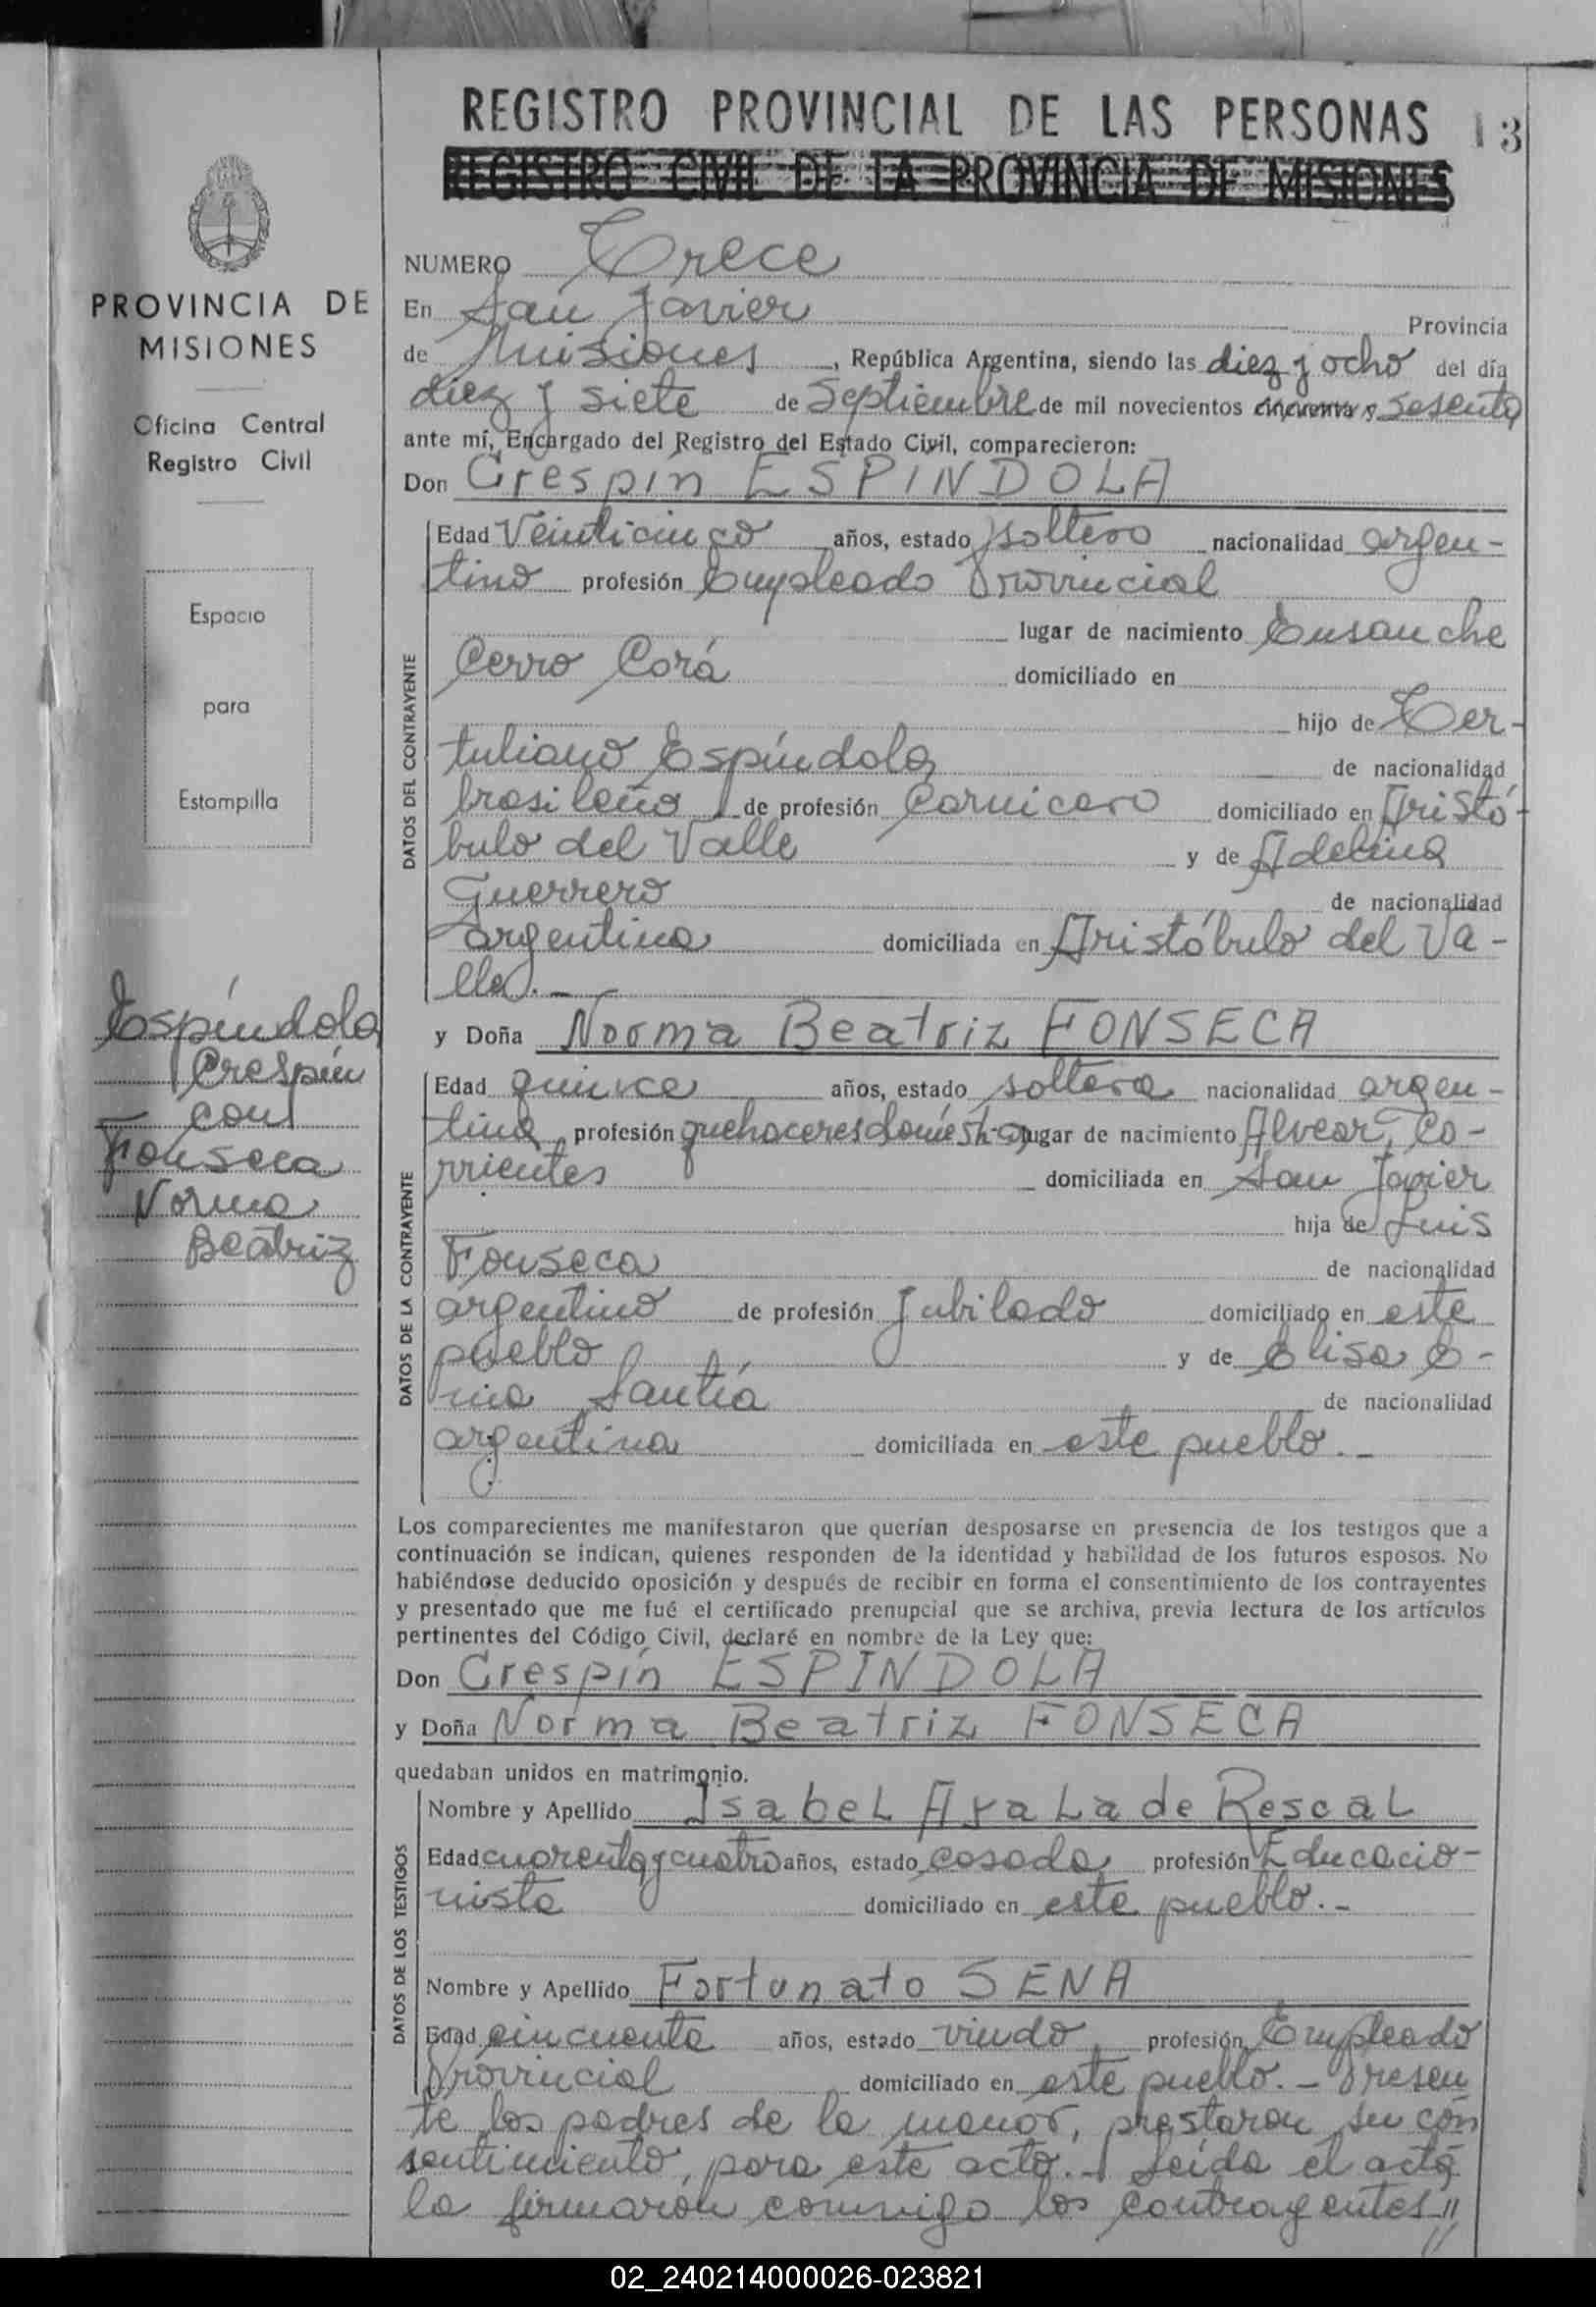 REGISTRO PROVINCIAL DE LAS PERSONAS 13
REGISTRO CIVIL DE LA PROVINCIA DE MISIONES
PROVINCIA DE
MISIONES
Oficina Central
Registro Civil
Espacio
para
Estampilla
Espíndola
Crespín
con
Fonseca
Norma
Beatriz
NUMERO Trece
En San Javier Provincia
de Misiones, República Argentina, siendo las diez y ocho del día
diez y siete de Septiembre de mil novecientos cincuenta y sesenta
ante mí, Encargado del Registro del Estado Civil, comparecieron:
Don Crespín ESPINDOLA
DATOS DEL CONTRAYENTE
Edad Veinticinco años, estado soltero nacionalidad argen-
tino profesión Empleado Provincial
lugar de nacimiento Ensanche
Cerro Corá domiciliado en
hijo de Ter-
tuliano Espíndola de nacionalidad
brasileño de profesión Carnicero domiciliado en Aristó-
bulo del Valle y de Adelina
Guerrero de nacionalidad
argentina domiciliada en Aristóbulo del Va-
lle.-
y Doña Norma Beatriz FONSECA
DATOS DE LA CONTRAYENTE
Edad quince años, estado soltera nacionalidad argen-
tina profesión quehaceres domésticos lugar de nacimiento Alvear, Co-
rrientes domiciliada en San Javier
hija de Luis
Fonseca de nacionalidad
argentino de profesión Jubilado domiciliado en este
pueblo y de Elisa E-
rina Santía de nacionalidad
argentina domiciliada en este pueblo.-
Los comparecientes me manifestaron que querían desposarse en presencia de los testigos que a
continuación se indican, quienes responden de la identidad y habilidad de los futuros esposos. No
habiéndose deducido oposición y después de recibir en forma el consentimiento de los contrayentes
y presentado que me fué el certificado prenupcial que se archiva, previa lectura de los artículos
pertinentes del Código Civil, declaré en nombre de la Ley que:
Don Crespín ESPINDOLA
y Doña Norma Beatriz FONSECA
quedaban unidos en matrimonio.
DATOS DE LOS TESTIGOS
Nombre y Apellido Isabel Ayala de Rescal
Edad cuarenta y cuatro años, estado casada profesión Educacio-
nista domiciliado en este pueblo.-
Nombre y Apellido Fortunato SENA
Edad cincuenta años, estado viudo profesión Empleado
Provincial domiciliado en este pueblo.- Presen
te los padres de la menor, prestaron su con
sentimiento, para este acto.- Leída el acta
la firmarón conmigo los contrayentes //
02_240214000026-023821